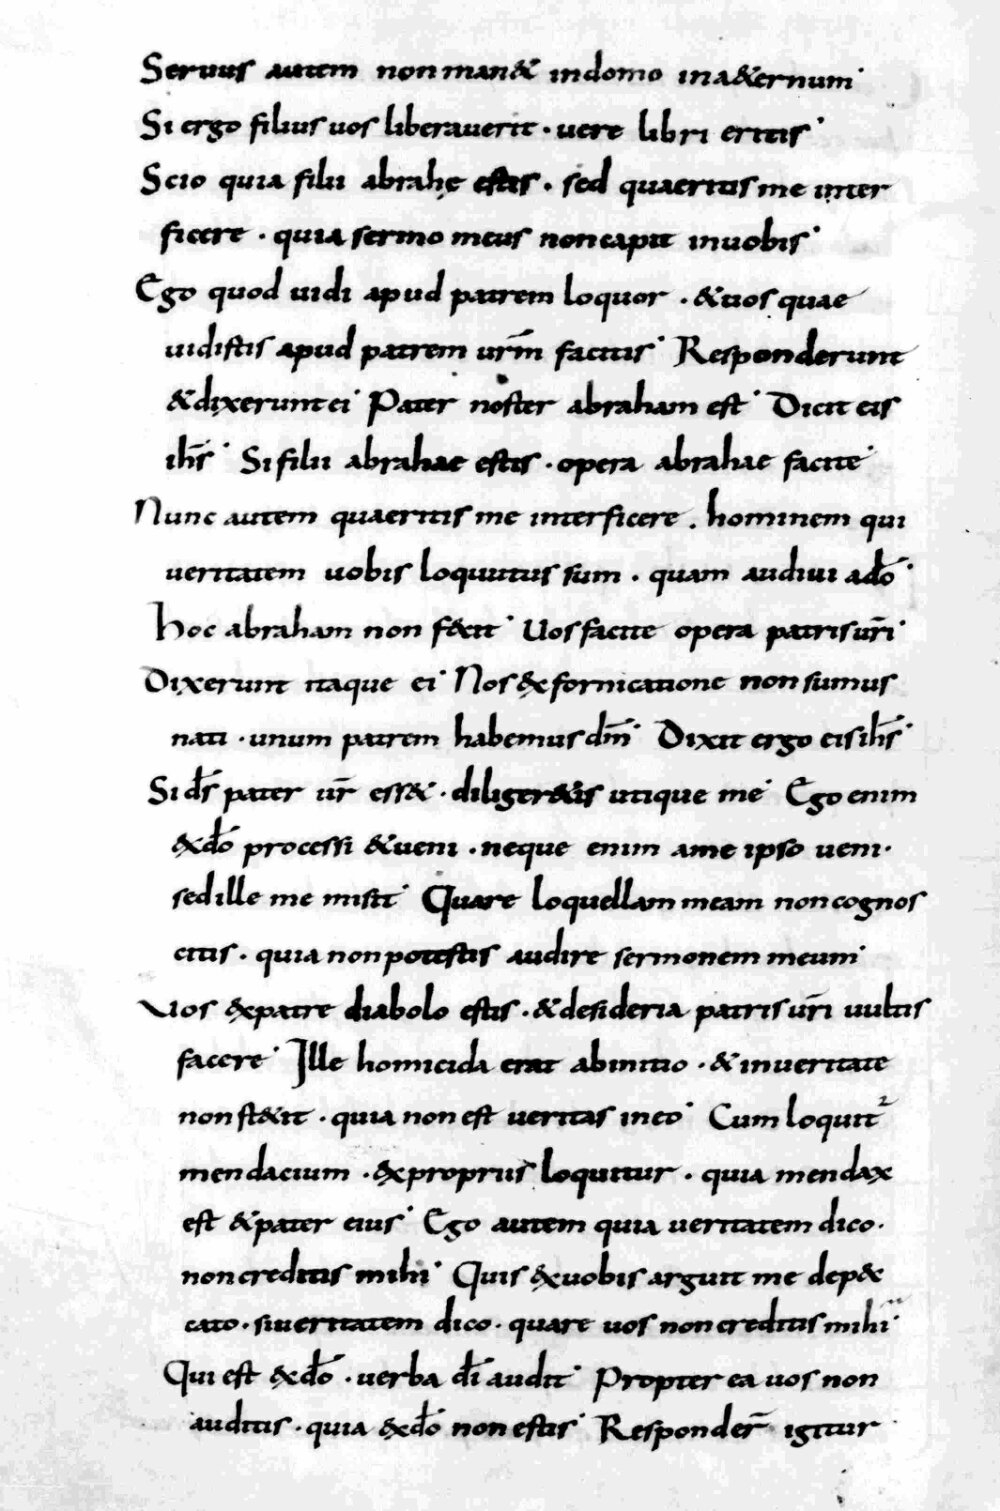 Seruus autem non man& indomo ina&ernum·
Si ergo filius uos liberauerit · uere libri eritis·
Scio quia filii abrahę estis · sed quaeritis me inter
ficere · quia sermo meus non capit inuobis·
Ego quod uidi apud patrem loquor · &uos quae
uidistis apud patrem urm̄ facitis· Responderunt
&dixerunt ei· Pater noster abraham est· Dicit eis
ihs̄· Si filii abrahae estis · opera abrahae facite·
Nunc autem quaeritis me interficere . hominem qui
ueritatem uobis loquutus sum · quam audiui ado̅·
hoc abraham non fecit· Uos facite opera patris uri̅·
Dixerunt itaque ei· Nos &x fornicatione non sumus
nati · unum patrem habemus dm̄· Dixit ergo eis ihs̄·
Si ds̄ pater ur̄ ess& · diliger&is utique me· Ego enim
&xdo̅ processi &ueni · neque enim ame ipso ueni·
sed ille me misit· Quare loquellam meam non cognos
citis · quia non potestis audire sermonem meum·
Uos &xpatre diabolo estis · &desideria patris uri̅ uultis
facere· Ille homicida erat abinitio · &inueritate
non st&it · quia non est ueritas ineo· Cum loquit²
mendacium · &xpropriis loquitur · quia mendax
est &pater eius· Ego autem quia ueritatem dico·
non creditis mihi· Quis &xuobis arguit me depec
cato · siueritatem dico · quare uos non creditis mihi
Qui est &xdo̅ · uerba di̅ audit· Propter ea uos non
auditis · quia &xdo̅ non estis· Responder̄ igitur